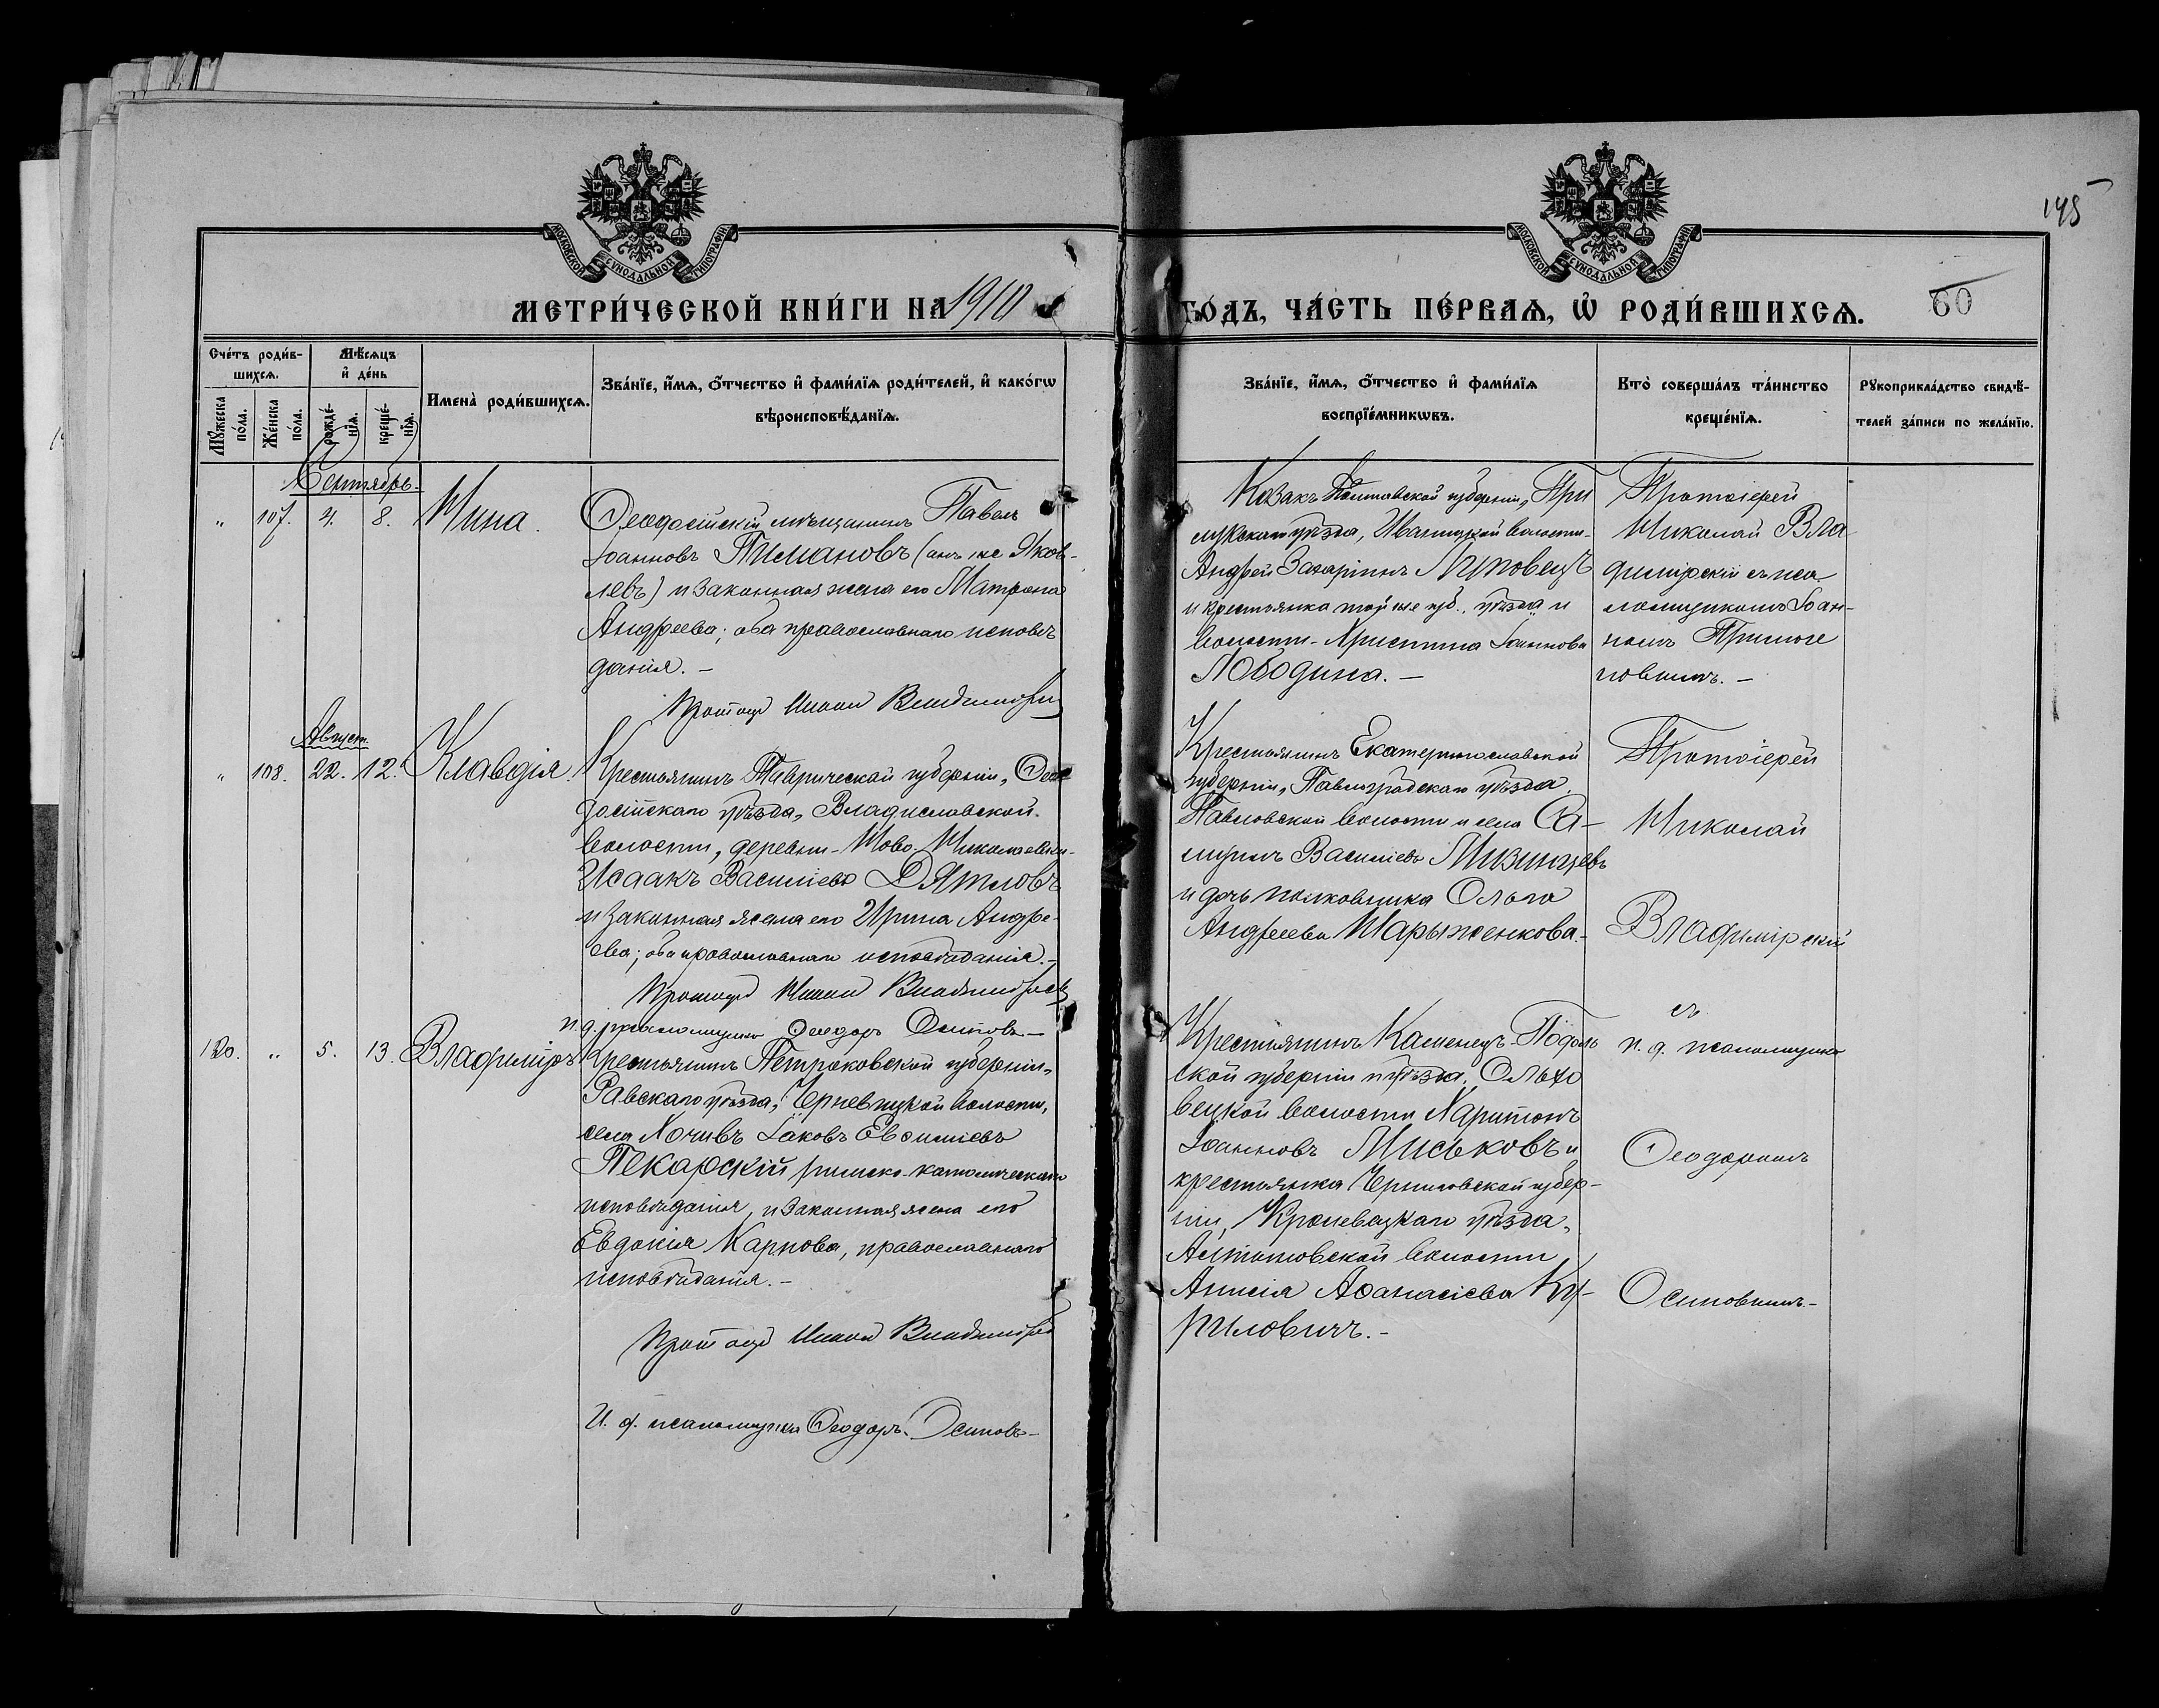 145
МОСКОВСКОЙ СѴНОДАЛЬНОЙ ТИПОГРАФІИ
МОСКОВСКОЙ СѴНОДАЛЬНОЙ ТИПОГРАФІИ
МЕТРИ́ЧЕСКОЙ КНИ́ГИ НА 1910
ГО́ДЪ, ЧА́СТЬ ПЕ́РВАѦ, Ѽ РОДИ́ВШИХСѦ.
60
Сче́тъ роди́в-
шихсѧ.
Мꙋ́жеска по́ла.
Же́нска по́ла.
Мѣ́сѧцъ
и҆ де́нь
рожде́-нїѧ.
креще́-нїѧ.
Имена̀ роди́вшихсѧ.
Зва́нїе, и҆́мѧ, ѻ҆́тчество и҆ фами́лїѧ роди́телей, и҆ како́гѡ
вѣроисповѣ́данїѧ.
Зва́нїе, и҆́мѧ, ѻ҆́тчество и҆ фами́лїѧ
воспрїе́мникѡвъ.
Кто̀ соверша́лъ та́инство
креще́нїѧ.
Рꙋкоприкла́дство свидѣ́-
телей за́писи по жела́нїю.
Сентябрь.
„ 107. 4. 8. Нина.
Ѳеодосійскій мѣщанинъ Павелъ
Іоанновъ Тимановъ (онъ же Яков-
левъ) и законная жена его Матрона
Андреева; оба православнаго исповѣ
данія. —
Протоіер Николай Владимірскій
Козакъ Полтавской губерніи, При
лукскаго уѣзда, Иваницкой волости-
Андрей Захаріинъ Липовецъ
и крестьянка той же губ., уѣзда и
волости - Христина Іоаннова
Лободина. —
Протоіерей
Николай Вла
димірскій съ пса
ломщикомъ Іоан-
номъ
Август.
„ 108. 22. 12. Клавдія.
Крестьянинъ Таврической губерніи, Ѳео
досійскаго уѣзда, Владиславской
волости, деревни - Ново-Николаевки-
Исаакъ Васильевъ Дятловъ
и законная жена его Ирина Андре-
ева; оба православнаго исповѣданія. -
Протоіер Николай Владимірскій
и. д. псаломщика Ѳеодоръ Осиповъ —
Крестьянинъ Екатеринославской
губерніи, Павлоградскаго уѣзда
Павловской волости и села Са-
муилъ Васильевъ
и дочь полковника Ольга
Андреева Шарыженкова. -
Протоіерей
Николай
Владимірскій
съ
и. д. псаломщика
Ѳеодоромъ
Осиповымъ. -
120. „ 5. 13. Владиміръ
Крестьянинъ Петроковской губерніи,
Равскаго уѣзда, волости,
села Іаковъ
Пекарскій римско-католическаго
исповѣданія, и законная жена его
Евдокія Карпова, православнаго
исповѣданія. -
Протоіер Николай Владимірскій
И. д. псаломщика Ѳеодоръ Осиповъ -
Крестьянинъ Каменецъ-Подоль
ской губерніи и уѣзда, Ольхо
вецкой волости Харитонъ
Іоанновъ Миськовъ и
крестьянка Черниговской губер-
ніи, Кролевецкаго уѣзда,
волости
Анисія Аѳанасіева Ку-
риловичъ. -